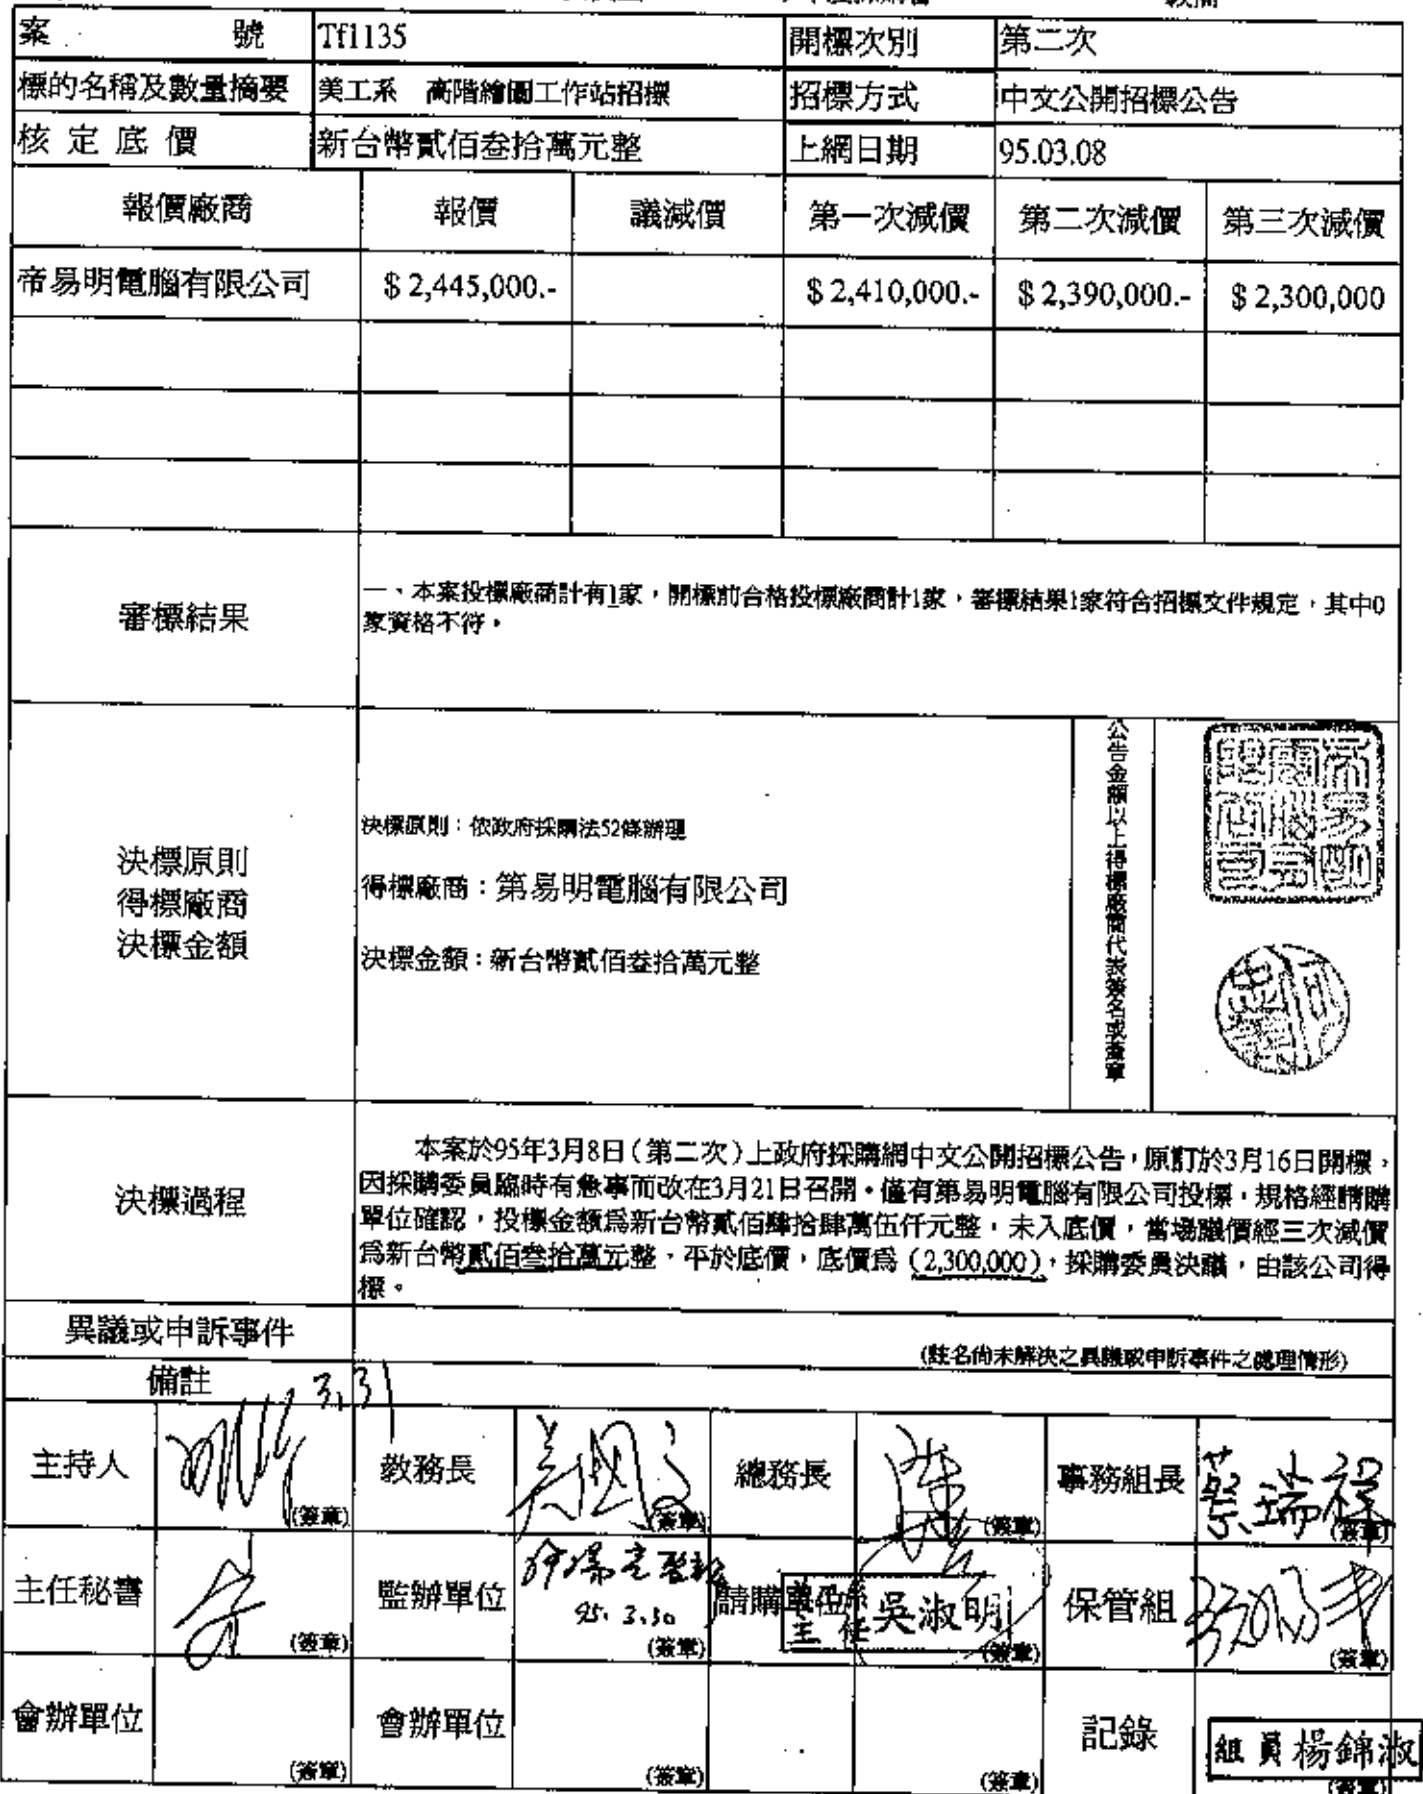 案 號 Tf1135 開標次別 第二次
標的名稱及數量摘要 美工系 高階繪圖工作站招標 招標方式 中文公開招標公告
核定底價 新台幣貳佰叁拾萬元整 上網日期 95.03.08
報價廠商 報價 議減價 第一次減價 第二次減價 第三次減價
帝易明電腦有限公司 $2,445,000.- $2,410,000.- $2,390,000.- $2,300,000
審標結果
一、本案投標廠商計有1家,開標前合格投標廠商計1家,審標結果1家符合招標文件規定,其中0
家資格不符。
決標原則
得標廠商
決標金額
決標原則:依政府採購法52條辦理
得標廠商:第易明電腦有限公司
決標金額:新台幣貳佰叁拾萬元整
公告金額以上得標廠商代表簽名或蓋章
決標過程
本案於95年3月8日(第二次)上政府採購網中文公開招標公告,原訂於3月16日開標,
因採購委員臨時有急事而改在3月21日召開。僅有第易明電腦有限公司投標,規格經請購
單位確認,投標金額為新台幣貳佰肆拾肆萬伍仟元整,未入底價,當場議價經三次減價
為新台幣貳佰叁拾萬元整,平於底價,底價為(2,300,000),採購委員決議,由該公司得
標。
異議或申訴事件
(註名尚未解決之異議或申訴事件之處理情形)
備註
3,31
主持人 (簽章) 教務長 (簽章) 總務長 (簽章) 事務組長 蔡瑞祥 (簽章)
主任秘書 (簽章) 監辦單位 95. 3.30 (簽章) 請購單位 主任 吳淑明 (簽章) 保管組 (簽章)
會辦單位 (簽章) 會辦單位 (簽章) (簽章) 記錄 組員楊錦淑 (簽章)